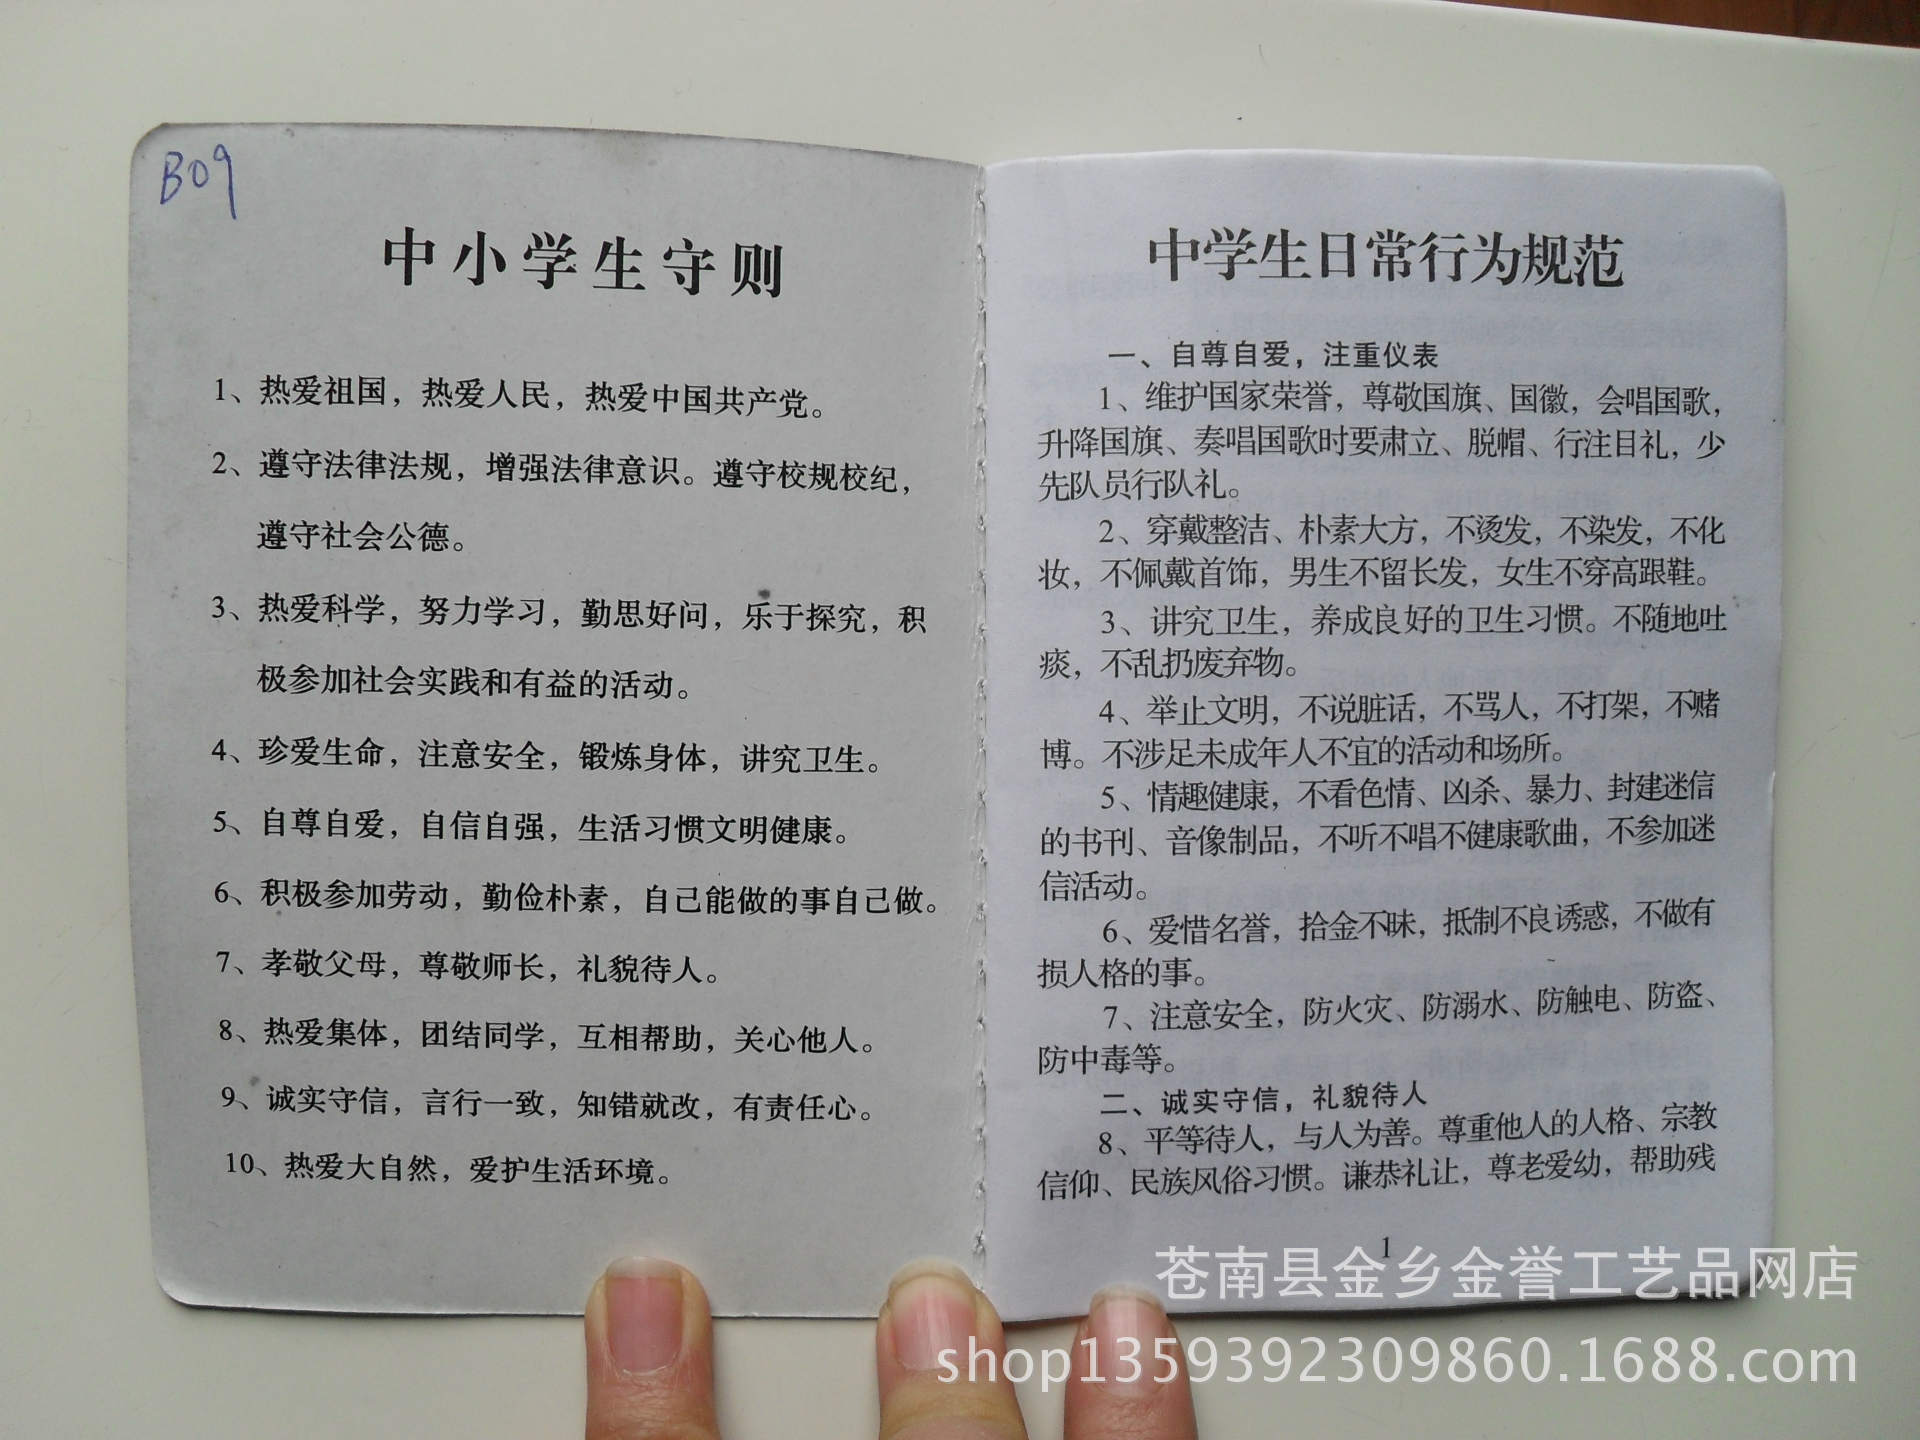 B09
中小学生守则
1、热爱祖国，热爱人民，热爱中国共产党。
2、遵守法律法规，增强法律意识。遵守校规校纪，
遵守社会公德。
3、热爱科学，努力学习，勤思好问，乐于探究，积
极参加社会实践和有益的活动。
4、珍爱生命，注意安全，锻炼身体，讲究卫生。
5、自尊自爱，自信自强，生活习惯文明健康。
6、积极参加劳动，勤俭朴素，自己能做的事自己做。
7、孝敬父母，尊敬师长，礼貌待人。
8、热爱集体，团结同学，互相帮助，关心他人。
9、诚实守信，言行一致，知错就改，有责任心。
10、热爱大自然，爱护生活环境。
中学生日常行为规范
一、自尊自爱，注重仪表
1、维护国家荣誉，尊敬国旗、国徽，会唱国歌，
升降国旗、奏唱国歌时要肃立、脱帽、行注目礼，少
先队员行队礼。
2、穿戴整洁、朴素大方，不烫发，不染发，不化
妆，不佩戴首饰，男生不留长发，女生不穿高跟鞋。
3、讲究卫生，养成良好的卫生习惯。不随地吐
痰，不乱扔废弃物。
4、举止文明，不说脏话，不骂人，不打架，不赌
博。不涉足未成年人不宜的活动和场所。
5、情趣健康，不看色情、凶杀、暴力、封建迷信
的书刊、音像制品，不听不唱不健康歌曲，不参加迷
信活动。
6、爱惜名誉，拾金不昧，抵制不良诱惑，不做有
损人格的事。
7、注意安全，防火灾、防溺水、防触电、防盗、
防中毒等。
二、诚实守信，礼貌待人
8、平等待人，与人为善。尊重他人的人格、宗教
信仰、民族风俗习惯。谦恭礼让，尊老爱幼，帮助残
1
苍南县金乡金誉工艺品网店
shop1359392309860.1688.com